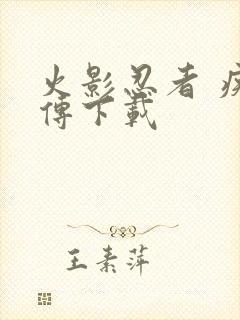 火影忍者 疾
傳下載
王素萍